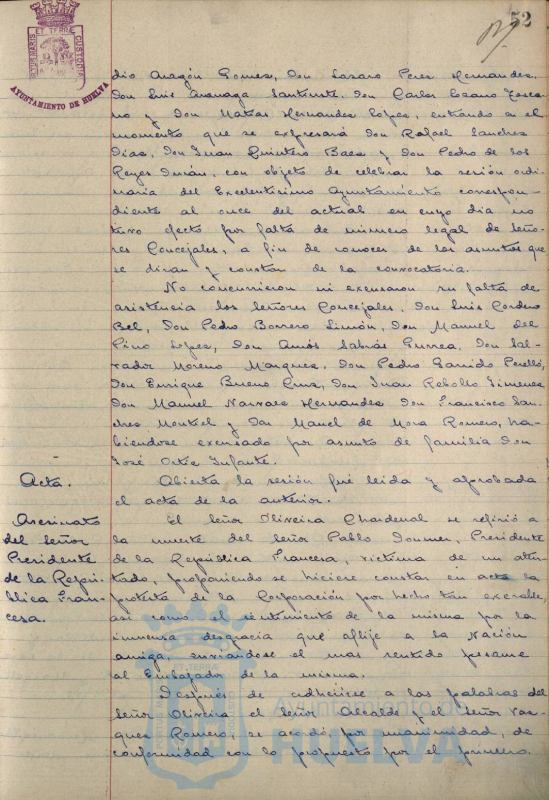 52
ET TERRÆ
CUSTODIA
AYUNTAMIENTO DE HUELVA
dio Aragón Gomez, Don Lazaro Perez Hernandez,
Don Luis Don Carlos Lozano Tosca-
no y Don Matias Hernandez López, entrando en el
momento que se expresará Don Rafael Sanchez
Diaz, Don Juan Quintero Baez y Don Pedro de los
Reyes Durán, con objeto de celebrar la sesión ordi-
naria del Excelentisimo Ayuntamiento correspon-
diente al once del actual en cuyo dia no
tuvo efecto por falta de número legal de Seño-
res Concejales, a fin de conocer de los asuntos que
se diran y constan de la convocatoria.
No concurrieron ni excusaron su falta de
asistencia los Señores Concejales, Don Luis Cordero
Bel, Don Pedro Borrero Limón, Don Manuel del
Pino Lopez, Don Amós Sabrás Gurrea, Don Sal-
vador Moreno Marquez, Don Pedro Garrido Perelló,
Don Enrique Bueno Cruz, Don Juan Rebollo Jimenez
Don Manuel Narvaez Hernandez Don Francisco San-
chez Montiel y Don Manuel de Mora Romero, ha-
biendose excusado por asunto de familia Don
José Ortiz Infante.
Acta.
Abierta la sesión fué leida y aprobada
el acta de la anterior.
Asesinato
del Señor
Presidente
de la Repú-
blica Fran-
cesa.
El Señor Oliveira Chardenal se refirió a
la muerte del Señor Pablo Doumer, Presidente
de la República Francesa, victima de un aten-
tado, proponiendo se hiciere constar en acta la
protesta de la Corporación por hecho tan execrable
asi como el sentimiento de la misma por la
inmensa desgracia que aflije a la Nación
amiga, enviandose el mas sentido pesame
al Embajador de la misma.
Después de adherirse a las palabras del
Señor Oliveira el Señor Alcalde y el Señor Vaz-
quez Romero, se acordó, por unanimidad, de
conformidad con lo propuesto por el primero.
Ayuntamiento de
HUELVA